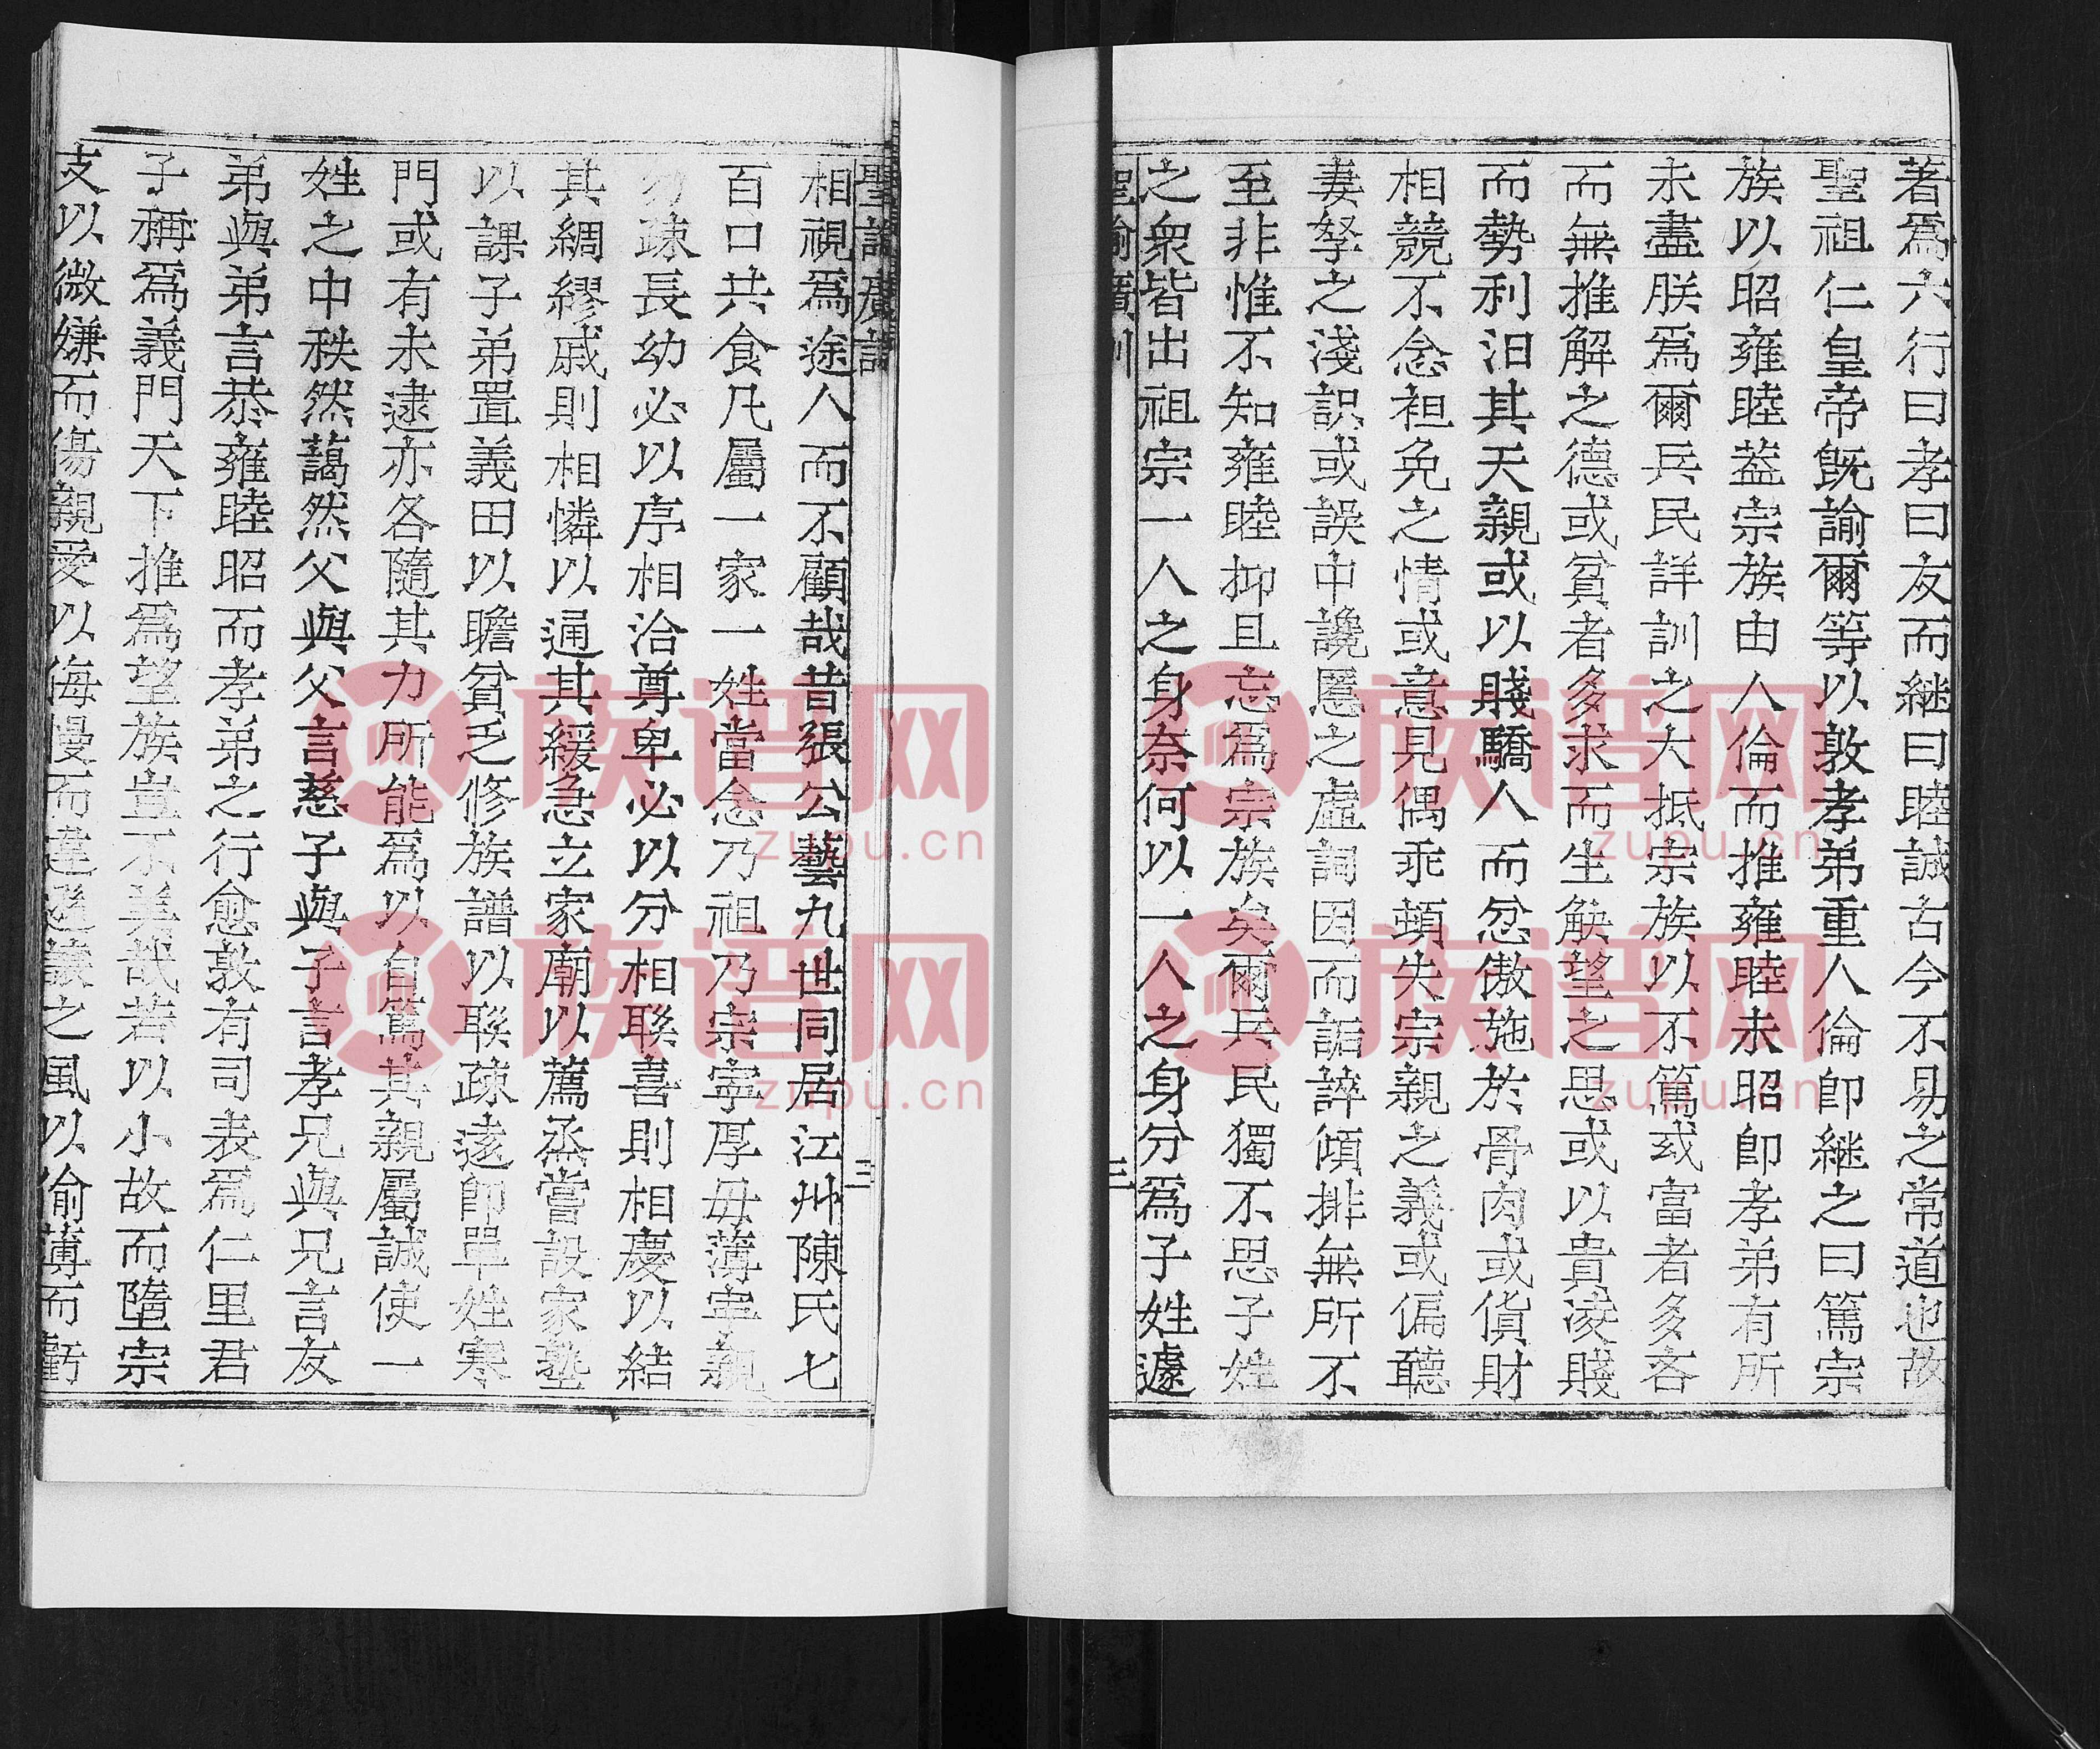 著爲六行曰孝曰友而繼曰睦誠古今不易之常道也故
聖祖仁皇帝旣諭爾等以敦孝弟重人倫卽繼之曰篤宗
族以昭雍睦葢宗族由人倫而推雍睦未昭卽孝弟有所
未盡朕爲爾兵民詳訓之大抵宗族以不篤或富者多吝
而無推解之德或貧者多求而生觖望之思或以貴凌賤
而勢利汨其天親或以賤驕人而忿傲施於骨肉或貨財
相競不念袒免之情或意見偶乖頓失宗親之義或偏聽
妻孥之淺識或誤中讒慝之虛詞因而詬誶傾排無所不
至非惟不知雍睦抑且忘爲宗族矣爾兵民獨不思子姓
之衆皆出祖宗一人之身奈何以一人之身分爲子姓遽
聖諭廣訓
三
聖諭廣訓
三
相視爲途人而不顧哉昔張公藝九世同居江州陳氏七
百口共食凡屬一家一姓當念乃祖乃宗寧厚毋薄寧親
勿疎長幼必以序相洽尊卑必以分相聯喜則相慶以結
其綢繆戚則相憐以通其緩急立家廟以薦烝嘗設家塾
以課子弟置義田以贍貧乏修族譜以聯疎遠卽單姓寒
門或有未逮亦各隨其力所能爲以自篤其親屬誠使一
姓之中秩然藹然父與父言慈子與子言孝兄與兄言友
弟與弟言恭雍睦昭而孝弟之行愈敦有司表爲仁里君
子稱爲義門天下推爲望族豈不美哉若以小故而墮宗
支以微嫌而傷親愛以侮慢而違遜讓之風以偷薄而虧
族谱网
zupu.cn
族谱网
zupu.cn
族谱网
zupu.cn
族谱网
zupu.cn